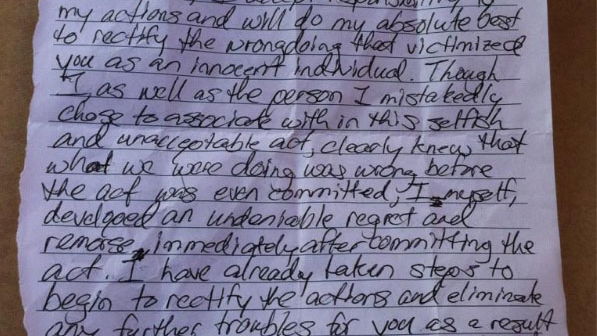 my actions and will do my absolute best
to rectify the wrongdoing that victimized
you as an innocent individual. Though
I, as well as the person I mistakedly
chose to associate with in this selfish
and unacceptable act, clearly knew that
what we were doing was wrong before
the act was even committed, I myself,
developed an undeniable regret and
remorse immediately after committing the
act. I have already taken steps to
begin to rectify the actions and eliminate
any further troubles for you as a result